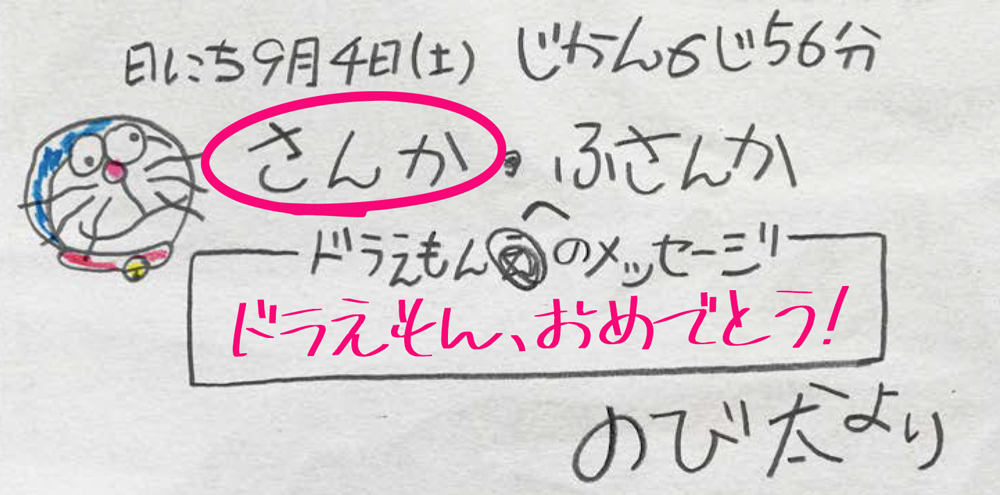 日にち9月4日(土) じかん6じ56分
さんか・ふさんか
ドラえもんへのメッセージ
ドラえもん、おめでとう!
のび太より